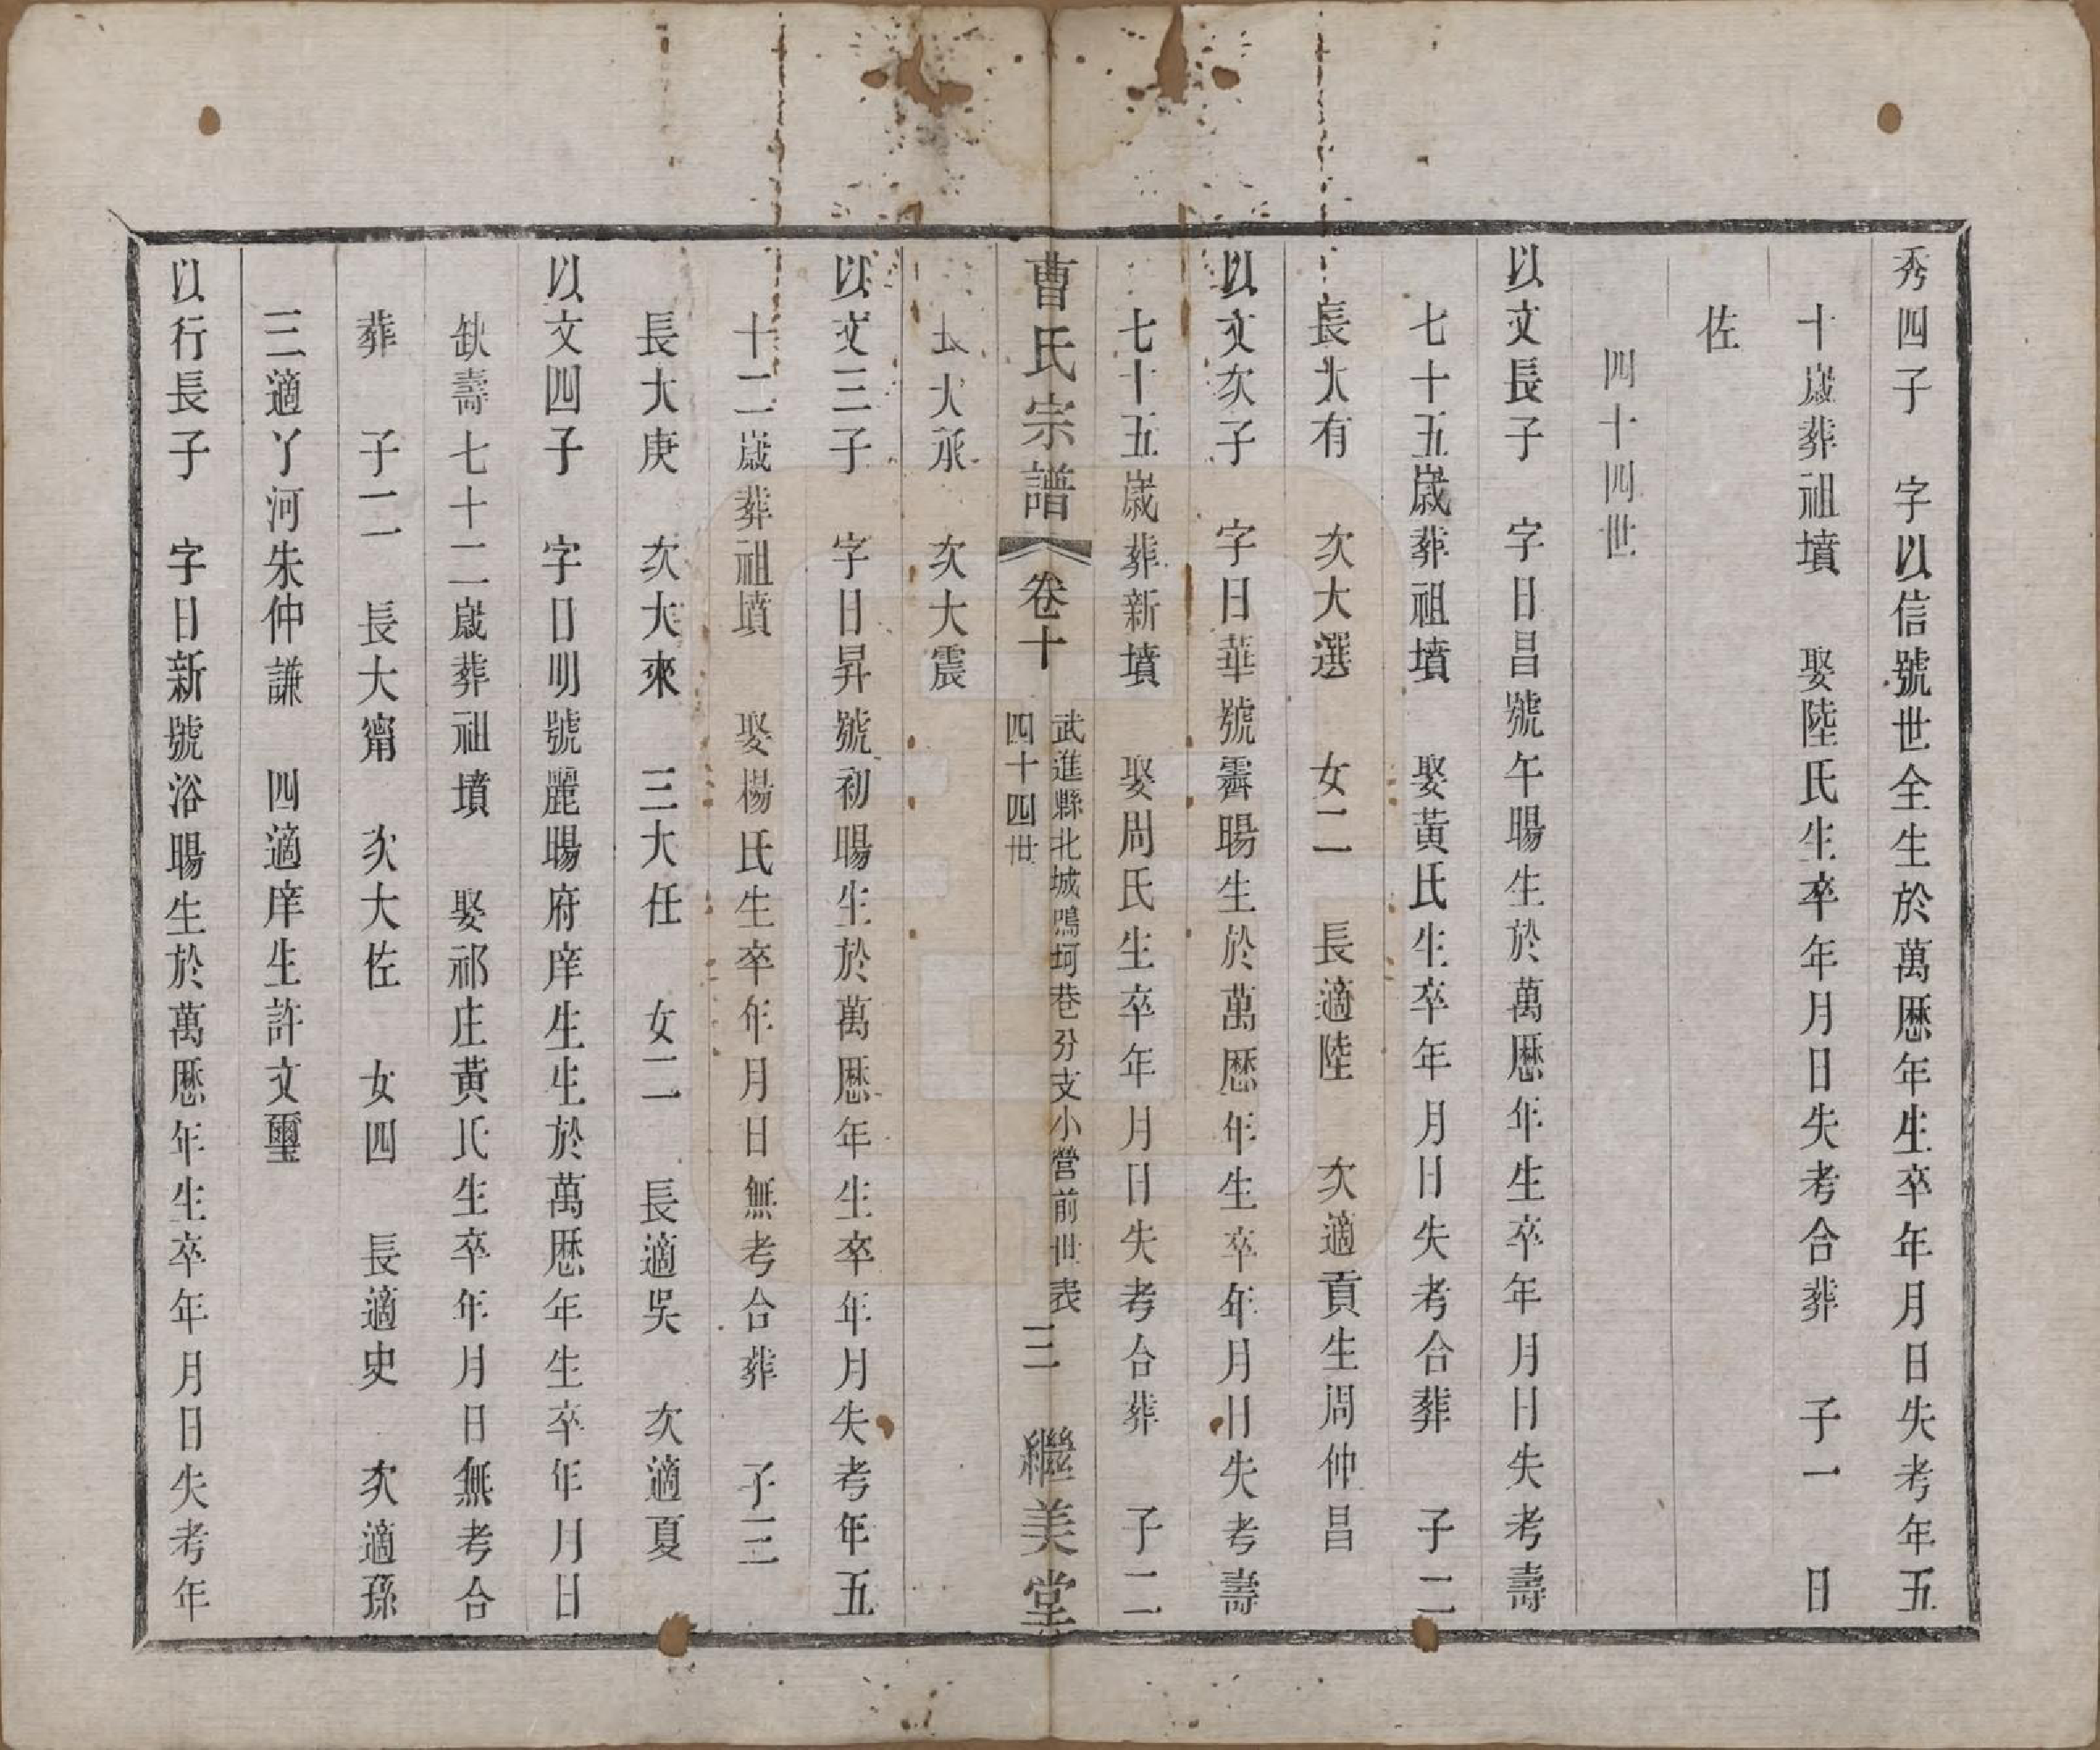 秀四子　字以信號世全生於萬歷年生卒年月日失考年五
十歲葬祖墳　娶陸氏生卒年月日失考合葬　子一　日
佐
四十四世
以文長子　字日昌號午暘生於萬歷年生卒年月日失考壽
七十五歲葬祖墳　娶黃氏生卒年月日失考合葬　子二
長大有　次大選　女二　長適陸　次適貢生周仲昌
以文次子　字日華號霽暘生於萬歷年生卒年月日失考壽
七十五歲葬新墳　娶周氏生卒年月日失考合葬　子二
曹氏宗譜　卷十　武進縣北城鳴珂巷分支小營前世表
四十四世　三　繼美堂
長大承　次大震
以文三子　字日昇號初暘生於萬歷年生卒年月失考年五
十二歲葬祖墳　娶楊氏生卒年月日無考合葬　子三
長大庚　次大來　三大任　女二　長適吳　次適夏
以文四子　字日明號麗暘府庠生生於萬歷年生卒年月日
缺壽七十二歲葬祖墳　娶祁庄黃氏生卒年月日無考合
葬　子二　長大甯　次大佐　女四　長適史　次適孫
三適丫河朱仲謙　四適庠生許文璽
以行長子　字日新號浴暘生於萬歷年生卒年月日失考年